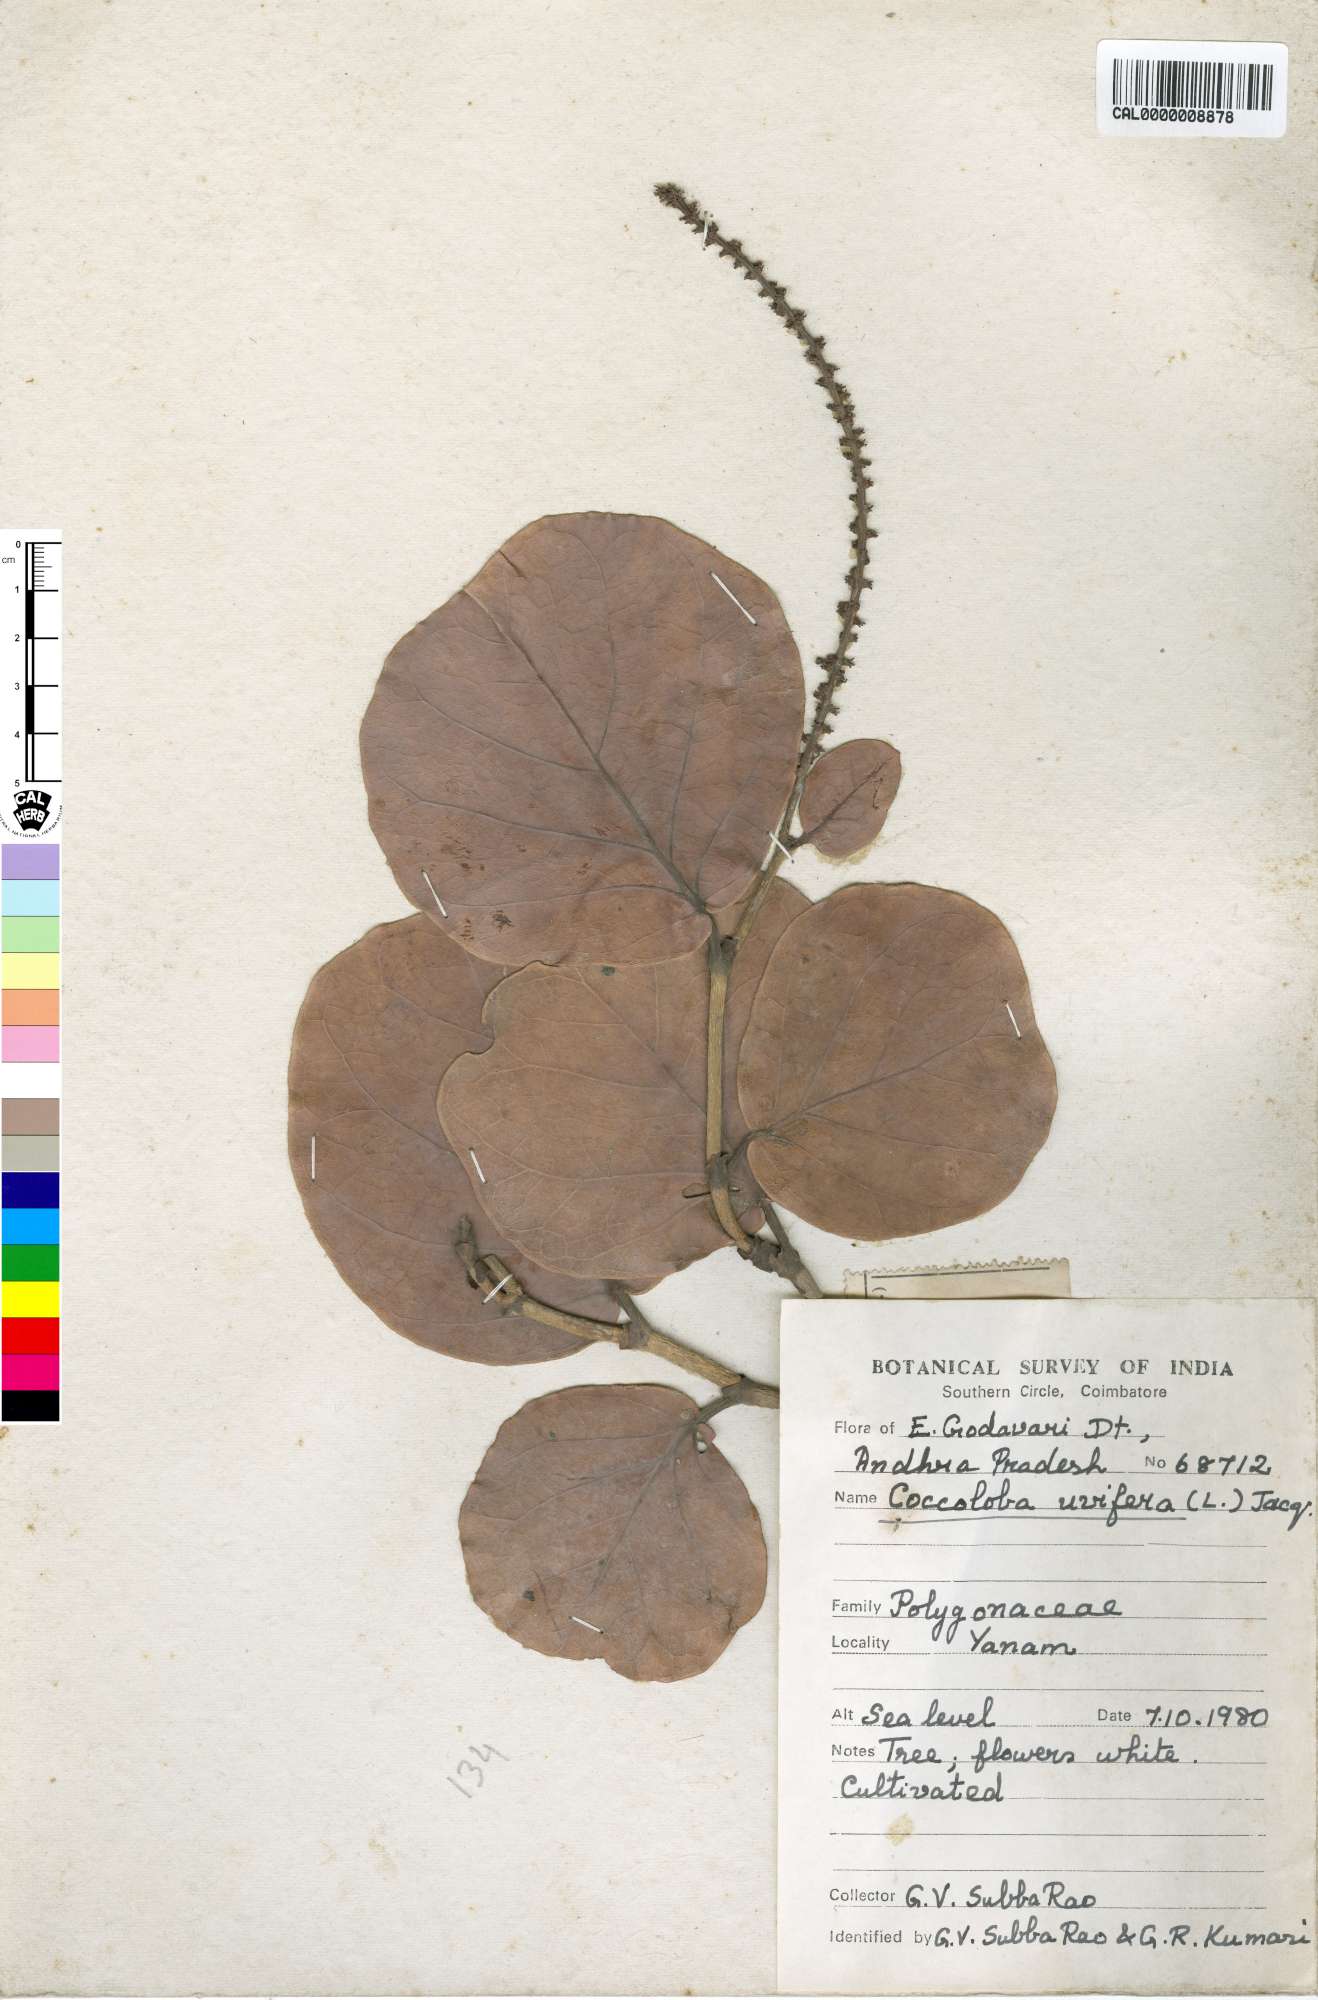 CAL0000008878
0
cm
1
2
3
4
5
CAL
HERB
BOTANICAL SURVEY OF INDIA
Southern Circle, Coimbatore
Flora of E. Godavari Dt.,
Andhra Pradesh No 68712
Name Coccoloba uvifera (L.) Jacq.
Family Polygonaceae
Locality Yanam
Alt Sea level Date 7.10.1980
Notes Tree; flowers white.
Cultivated
Collector G.V. Subba Rao
Identified by G.V. Subba Rao & G.R. Kumari
134